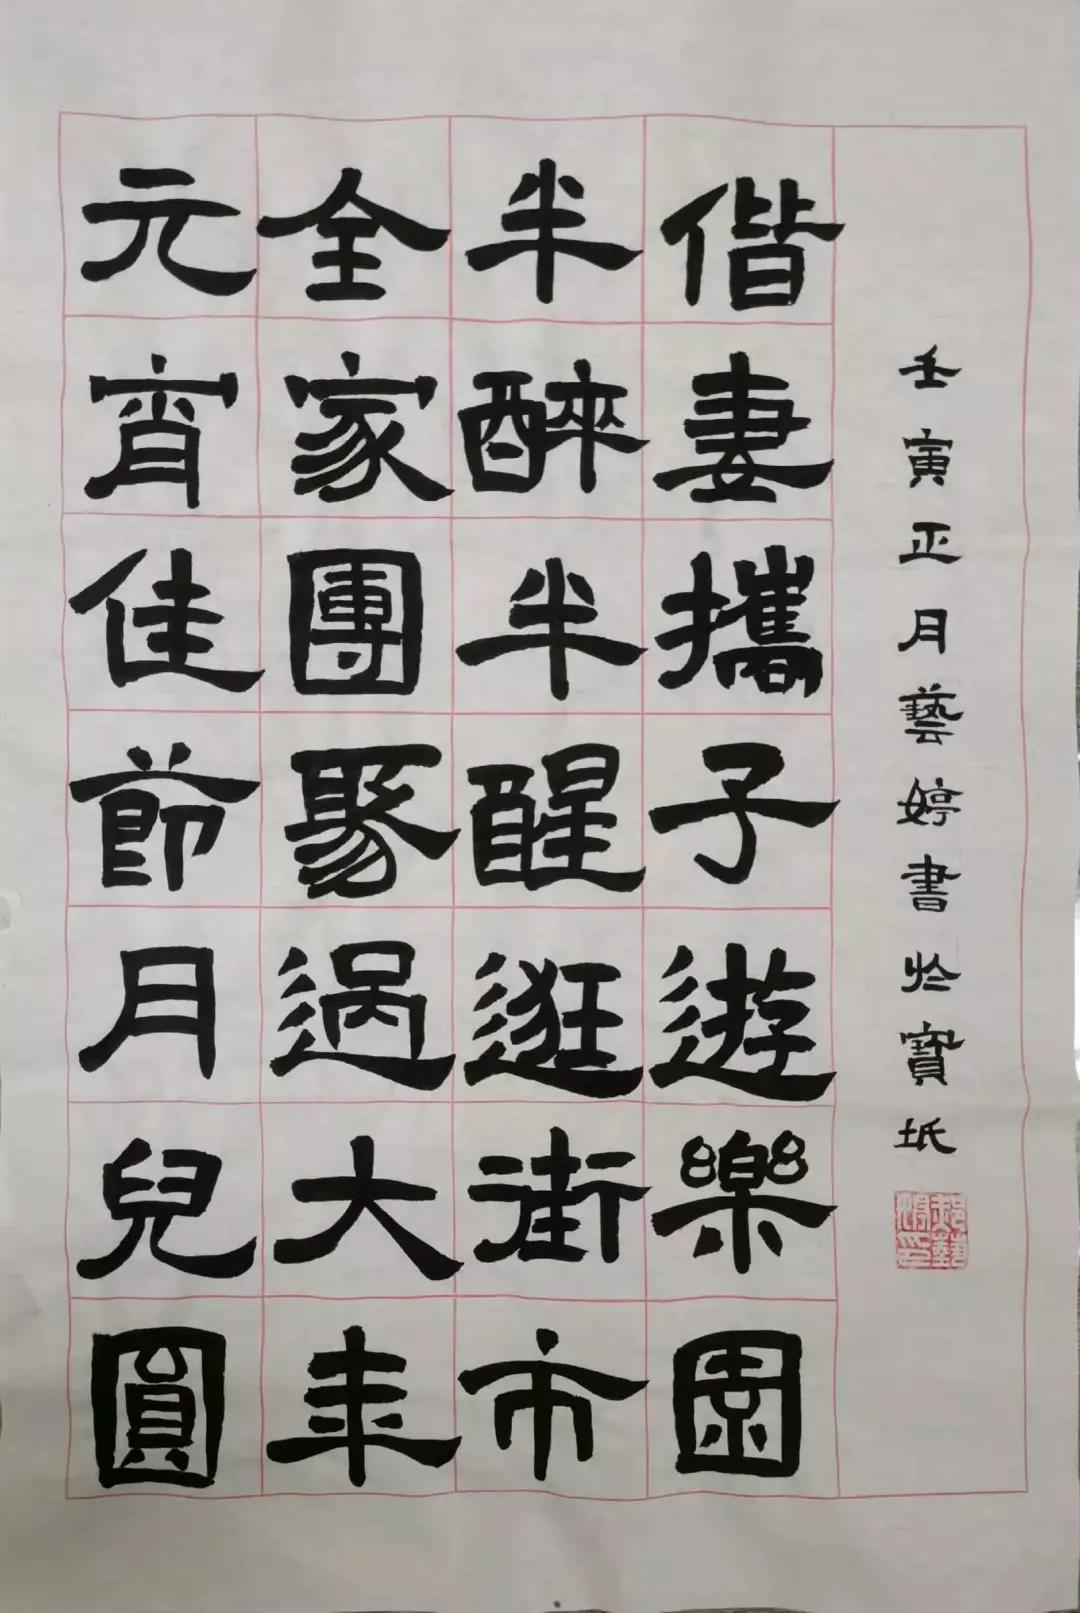 元宵佳節月兒圓
全家團聚過大年
半醉半醒逛街市
偕妻攜子遊樂園
壬寅正月藝婷書於寶坻